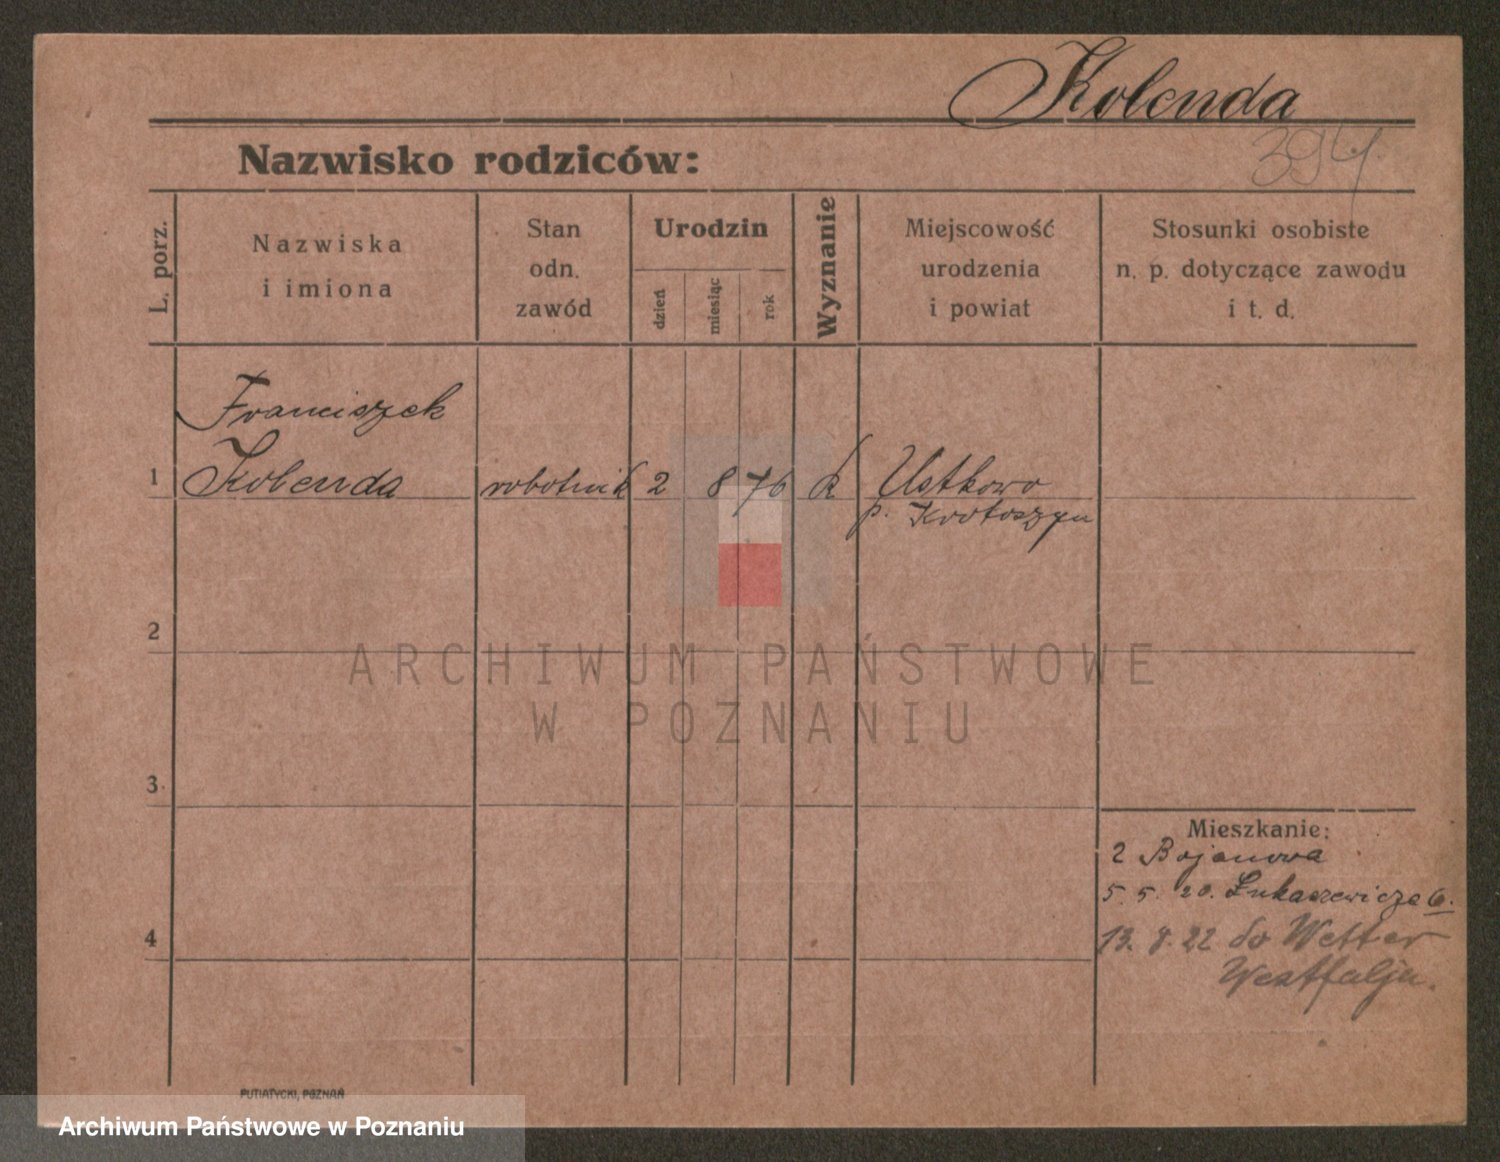 Kolenda
394
Nazwisko rodziców:
L. porz.
Nazwiska
i imiona
Stan
odn.
zawód
Urodzin
dzień
miesiąc
rok
Wyznanie
Miejscowość
urodzenia
i powiat
Stosunki osobiste
n. p. dotyczące zawodu
i t. d.
Franciszek
1 Kolenda robotnik 2 8 76 k Ustkowo
p. Krotoszyn
2
ARCHIWUM PAŃSTWOWE
W POZNANIU
3
Mieszkanie:
2 Bojanowa
5. 5. 20. Łukaszewicza 6.
4
13. 8. 22 do Wetter
Westfalja.
PUTIATYCKI, POZNAŃ
Archiwum Państwowe w Poznaniu